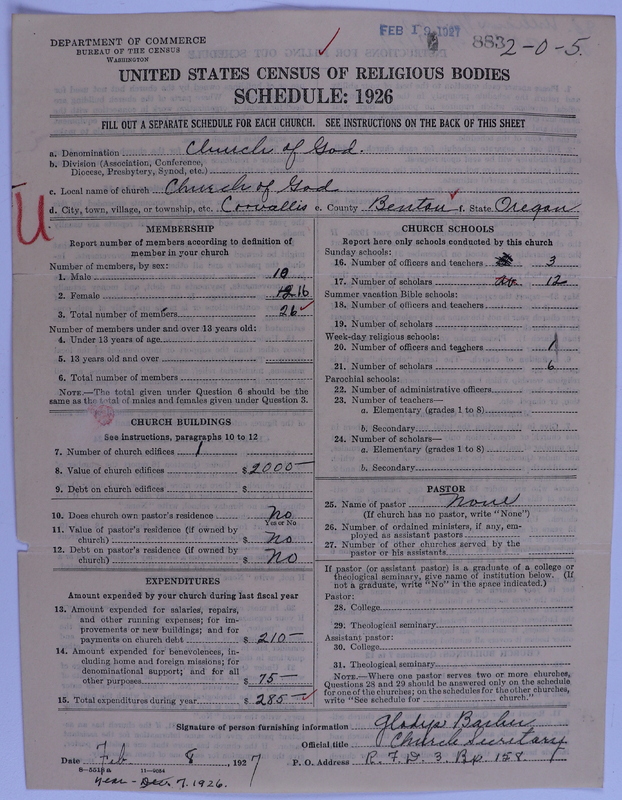 FEB 19 1927
8832-0-5.
DEPARTMENT OF COMMERCE
BUREAU OF THE CENSUS
WASHINGTON
UNITED STATES CENSUS OF RELIGIOUS BODIES
SCHEDULE: 1926
FILL OUT A SEPARATE SCHEDULE FOR EACH CHURCH. SEE INSTRUCTIONS ON THE BACK OF THIS SHEET
a. Denomination Church of God.
b. Division (Association, Conference,
Diocese, Presbytery, Synod, etc.)
c. Local name of church Church of God
d. City, town, village, or township, etc. Corvallis e. County Benton f. State Oregon
U
MEMBERSHIP
Report number of members according to definition of
member in your church
Number of members, by sex:
1. Male 10
2. Female 16
3. Total number of members 26
Number of members under and over 13 years old:
4. Under 13 years of age
5. 13 years old and over
6. Total number of members
NOTE.—The total given under Question 6 should be the
same as the total of males and females given under Question 3.
CHURCH BUILDINGS
See instructions, paragraphs 10 to 12
7. Number of church edifices 1
8. Value of church edifices $2000—
9. Debt on church edifices $
10. Does church own pastor's residence No
Yes or No
11. Value of pastor's residence (if owned by
church) $ No
12. Debt on pastor's residence (if owned by
church) $ No
EXPENDITURES
Amount expended by your church during last fiscal year
13. Amount expended for salaries, repairs,
and other running expenses; for im-
provements or new buildings; and for
payments on church debt $ 210—
14. Amount expended for benevolences, in-
cluding home and foreign missions; for
denominational support; and for all
other purposes $ 75—
15. Total expenditures during year $ 285—
CHURCH SCHOOLS
Report here only schools conducted by this church
Sunday schools:
16. Number of officers and teachers 3
17. Number of scholars 12
Summer vacation Bible schools:
18. Number of officers and teachers
19. Number of scholars
Week-day religious schools:
20. Number of officers and teachers 1
21. Number of scholars 6
Parochial schools:
22. Number of administrative officers
23. Number of teachers—
a. Elementary (grades 1 to 8)
b. Secondary
24. Number of scholars—
a. Elementary (grades 1 to 8)
b. Secondary
PASTOR
25. Name of pastor None
(If church has no pastor, write "None")
26. Number of ordained ministers, if any, em-
ployed as assistant pastors
27. Number of other churches served by the
pastor or his assistants
If pastor (or assistant pastor) is a graduate of a college or
theological seminary, give name of institution below. (If
not a graduate, write "No" in the space indicated.)
Pastor:
28. College
29. Theological seminary
Assistant pastor:
30. College
31. Theological seminary
NOTE.—Where one pastor serves two or more churches,
Questions 28 and 29 should be answered only on the schedule
for one of the churches; on the schedules for the other churches,
write "See schedule for church."
Signature of person furnishing information Gladys
Official title Church Secretary
Date Feb 8, 1927 P. O. Address R. F. D. 3. Bx 158
11—9084
Year— Dec 7, 1926.